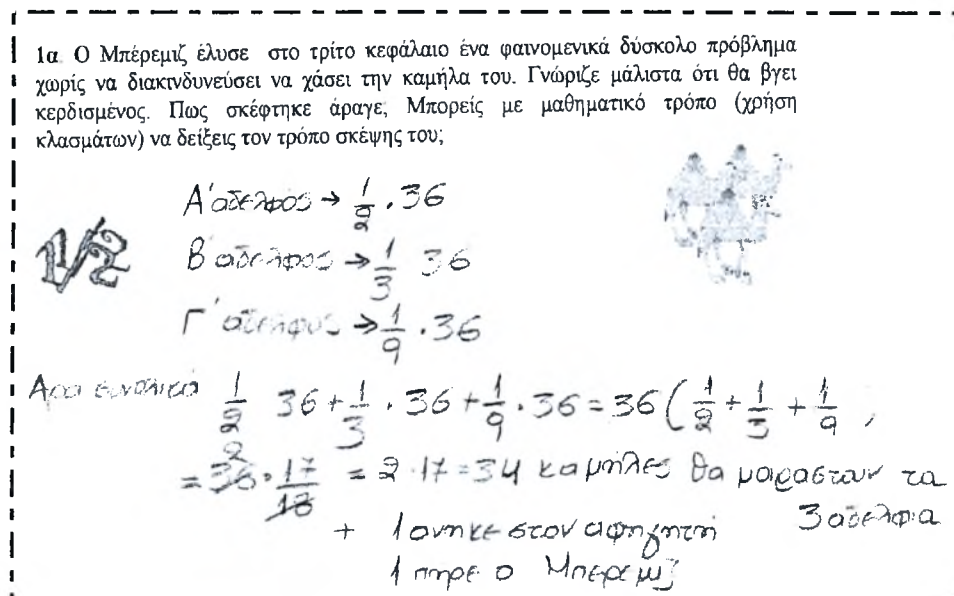 1α. Ο Μπέρεμιζ έλυσε στο τρίτο κεφάλαιο ένα φαινομενικά δύσκολο πρόβλημα
χωρίς να διακινδυνεύσει να χάσει την καμήλα του. Γνώριζε μάλιστα ότι θα βγει
κερδισμένος. Πως σκέφτηκε άραγε; Μπορείς με μαθηματικό τρόπο (χρήση
κλασμάτων) να δείξεις τον τρόπο σκέψης του;
Α' αδελφος → 1/2 . 36
1/2
Β αδελφος → 1/3 36
Γ' αδελφος → 1/9 . 36
Αρα συνολικά 1/2 36 + 1/3 . 36 + 1/9 . 36 = 36 ( 1/2 + 1/3 + 1/9 ,
2
= 36 . 17/18 = 2 . 17 = 34 καμήλες θα μοιραστουν τα
3 αδελφια
+ 1 ανηκε στον αφηγητή
1 πηρε ο Μπερεμιζ